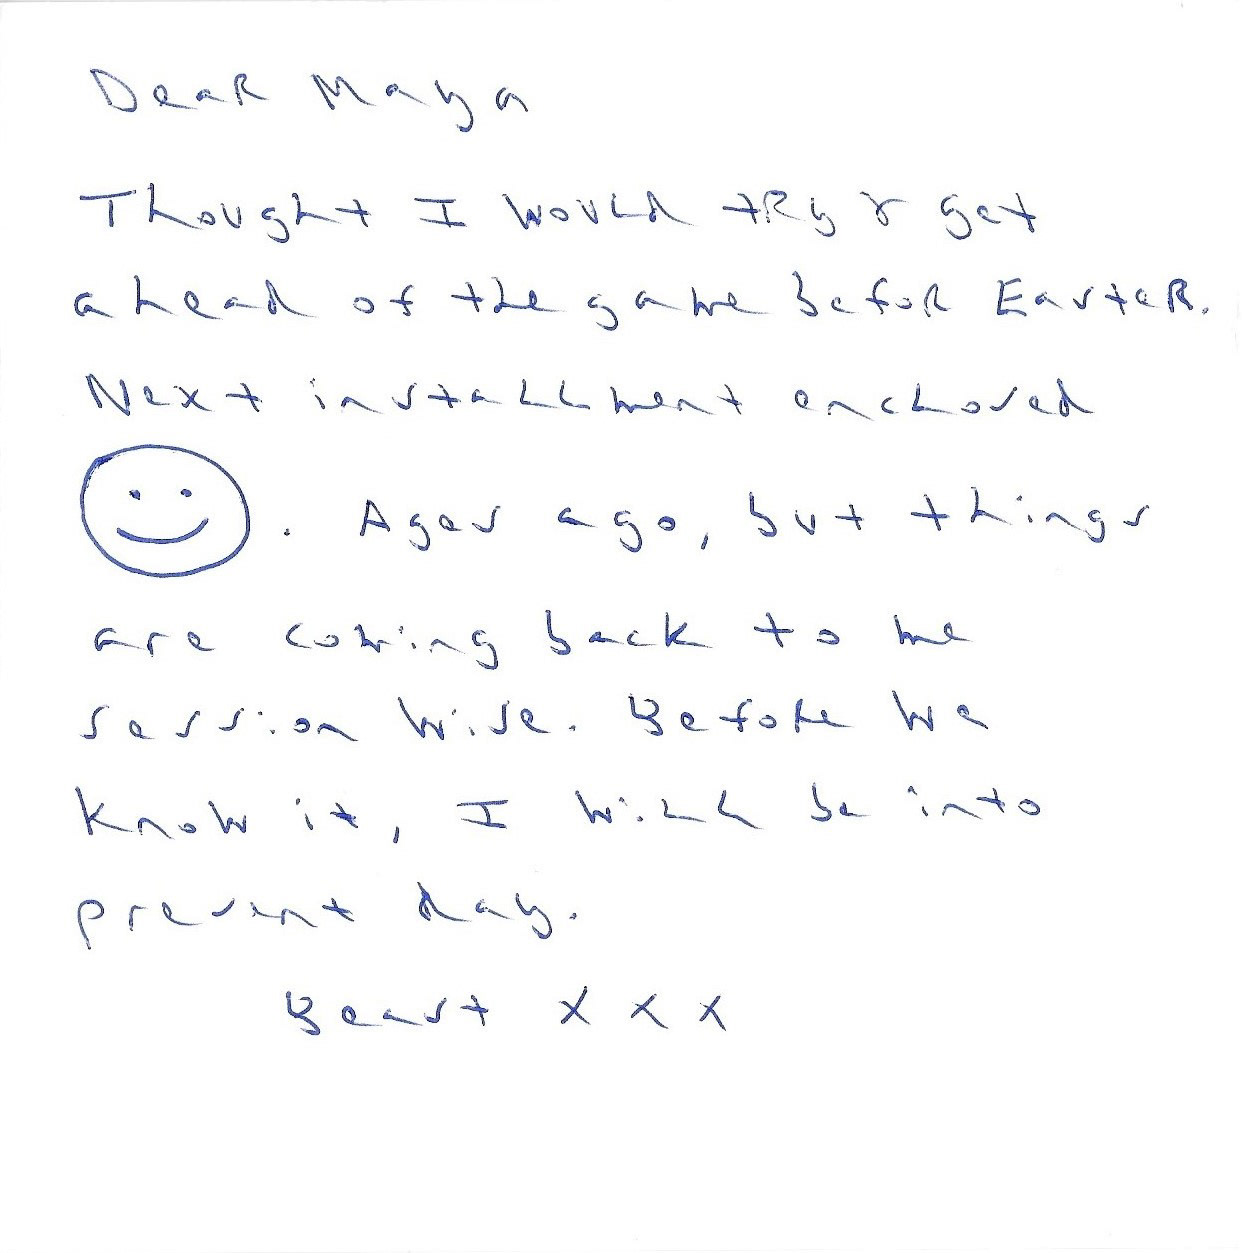 Dear Maya
Thought I would try & get
ahead of the game befor Easter.
Next installment enclosed
. Ages ago, but things
are coming back to me
session wise. Before we
know it, I will be into
present day.
Beast x x x